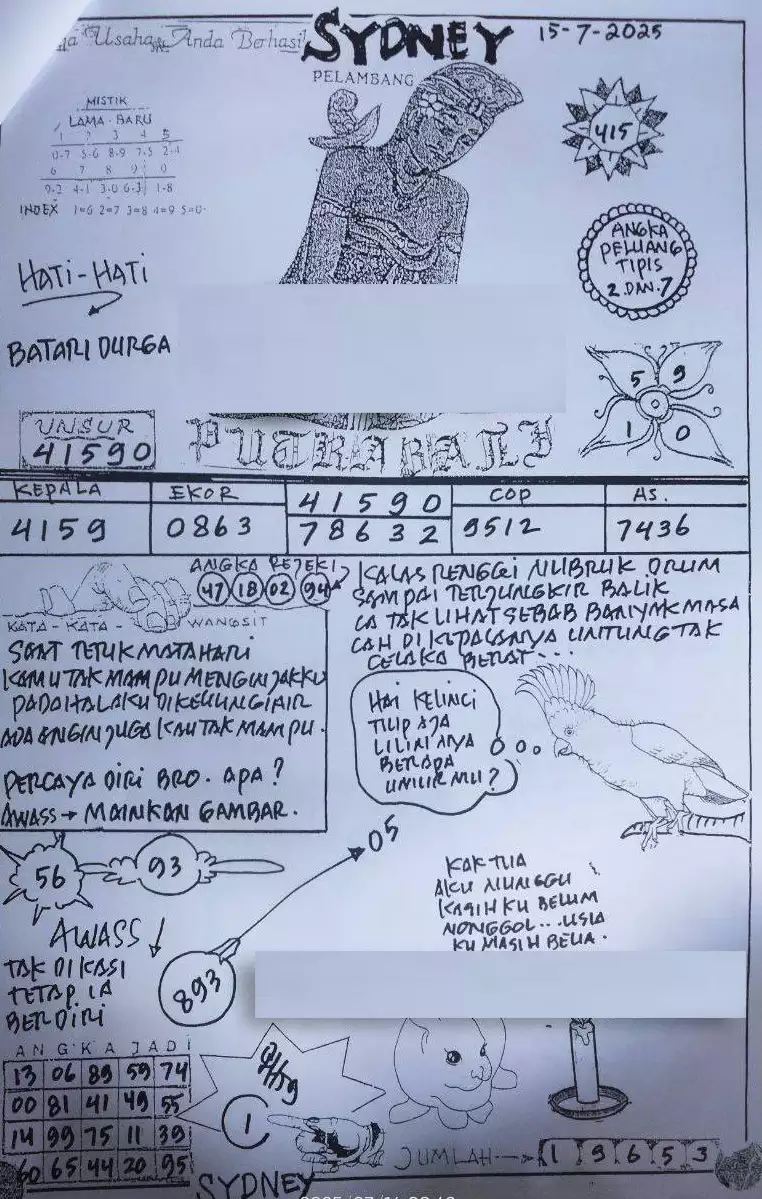 Usaha Anda Berhasil
SYDNEY
15-7-2025
PELAMBANG
MISTIK
LAMA - BARU
1 2 3 4 5
0-7 5-6 8-9 7-5 2-4
6 7 8 9 0
9-2 4-1 3-0 6-3 1-8
INDEX 1=6 2=7 3=8 4=9 5=0
415
ANGKA
PELUANG
TIPIS
2 DAN 7
HATI-HATI
BATARI DURGA
5 9
1 0
UNSUR
41590
PUTRA BALI
KEPALA
4159
EKOR
0863
41590
78632
COP
9512
AS.
7436
ANGKA REJEKI
47 18 02 94
KATA - KATA - WANGSIT
SAAT TERIK MATAHARI
KAMU TAK MAMPU MENGINJAKKU
PADAHAL AKU DIKELILINGI AIR
ADA ANGIN JUGA KAU TAK MAMPU.
PERCAYA DIRI BRO. APA?
AWASS → MAINKAN GAMBAR.
KALAS RENGGI NUBRUK DRUM
SAMPAI TERJUNGKIR BALIK
IA TAK LIHAT SEBAB BANYAK MASA
LAH DI KEPALANYA UNTUNG TAK
CELAKA BERAT...
HAI KELINCI
TIUP AJA
LILIN NYA
BERAPA
UMUR MU?
56
93
05
KAK TUA
AKU NUNGGU
KASIH KU BELUM
NONGGOL... USIA
KU MASIH BELIA.
AWASS!
TAK DIKASI
TETAP IA
BERDIRI
893
ANGKA JADI
13 06 89 59 74
00 81 41 49 55
14 99 75 11 39
60 65 44 20 95
1
JUMLAH → 1 9 6 5 3
SYDNEY